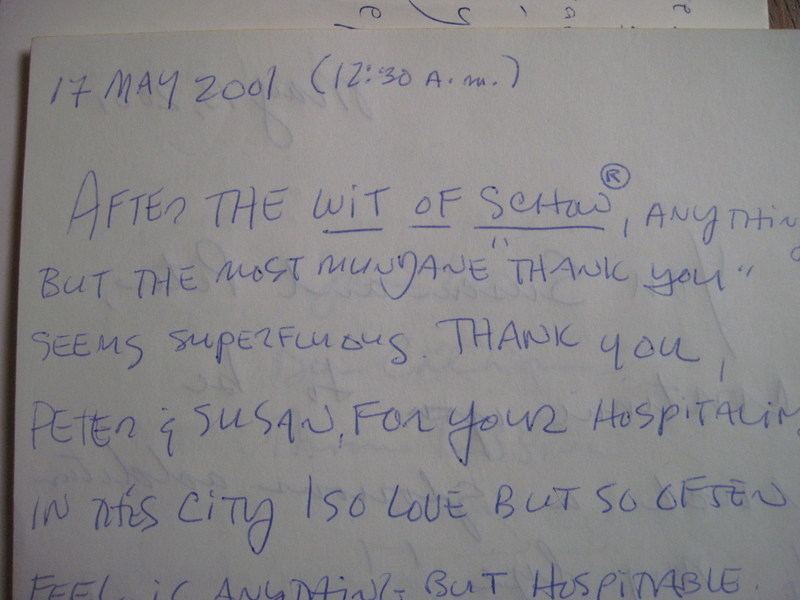 17 MAY 2001 (12:30 A.M.)
AFTER THE WIT OF SCHOW®, ANYTHIN
BUT THE MOST MUNDANE "THANK YOU"
SEEMS SUPERFLUOUS. THANK YOU,
PETER & SUSAN, FOR YOUR HOSPITALITY
IN THIS CITY I SO LOVE BUT SO OFTEN
FEEL IS ANYTHING BUT HOSPITABLE.